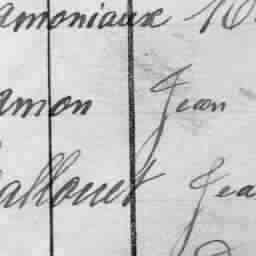 amoniaux
amon Jean
allouet Jea